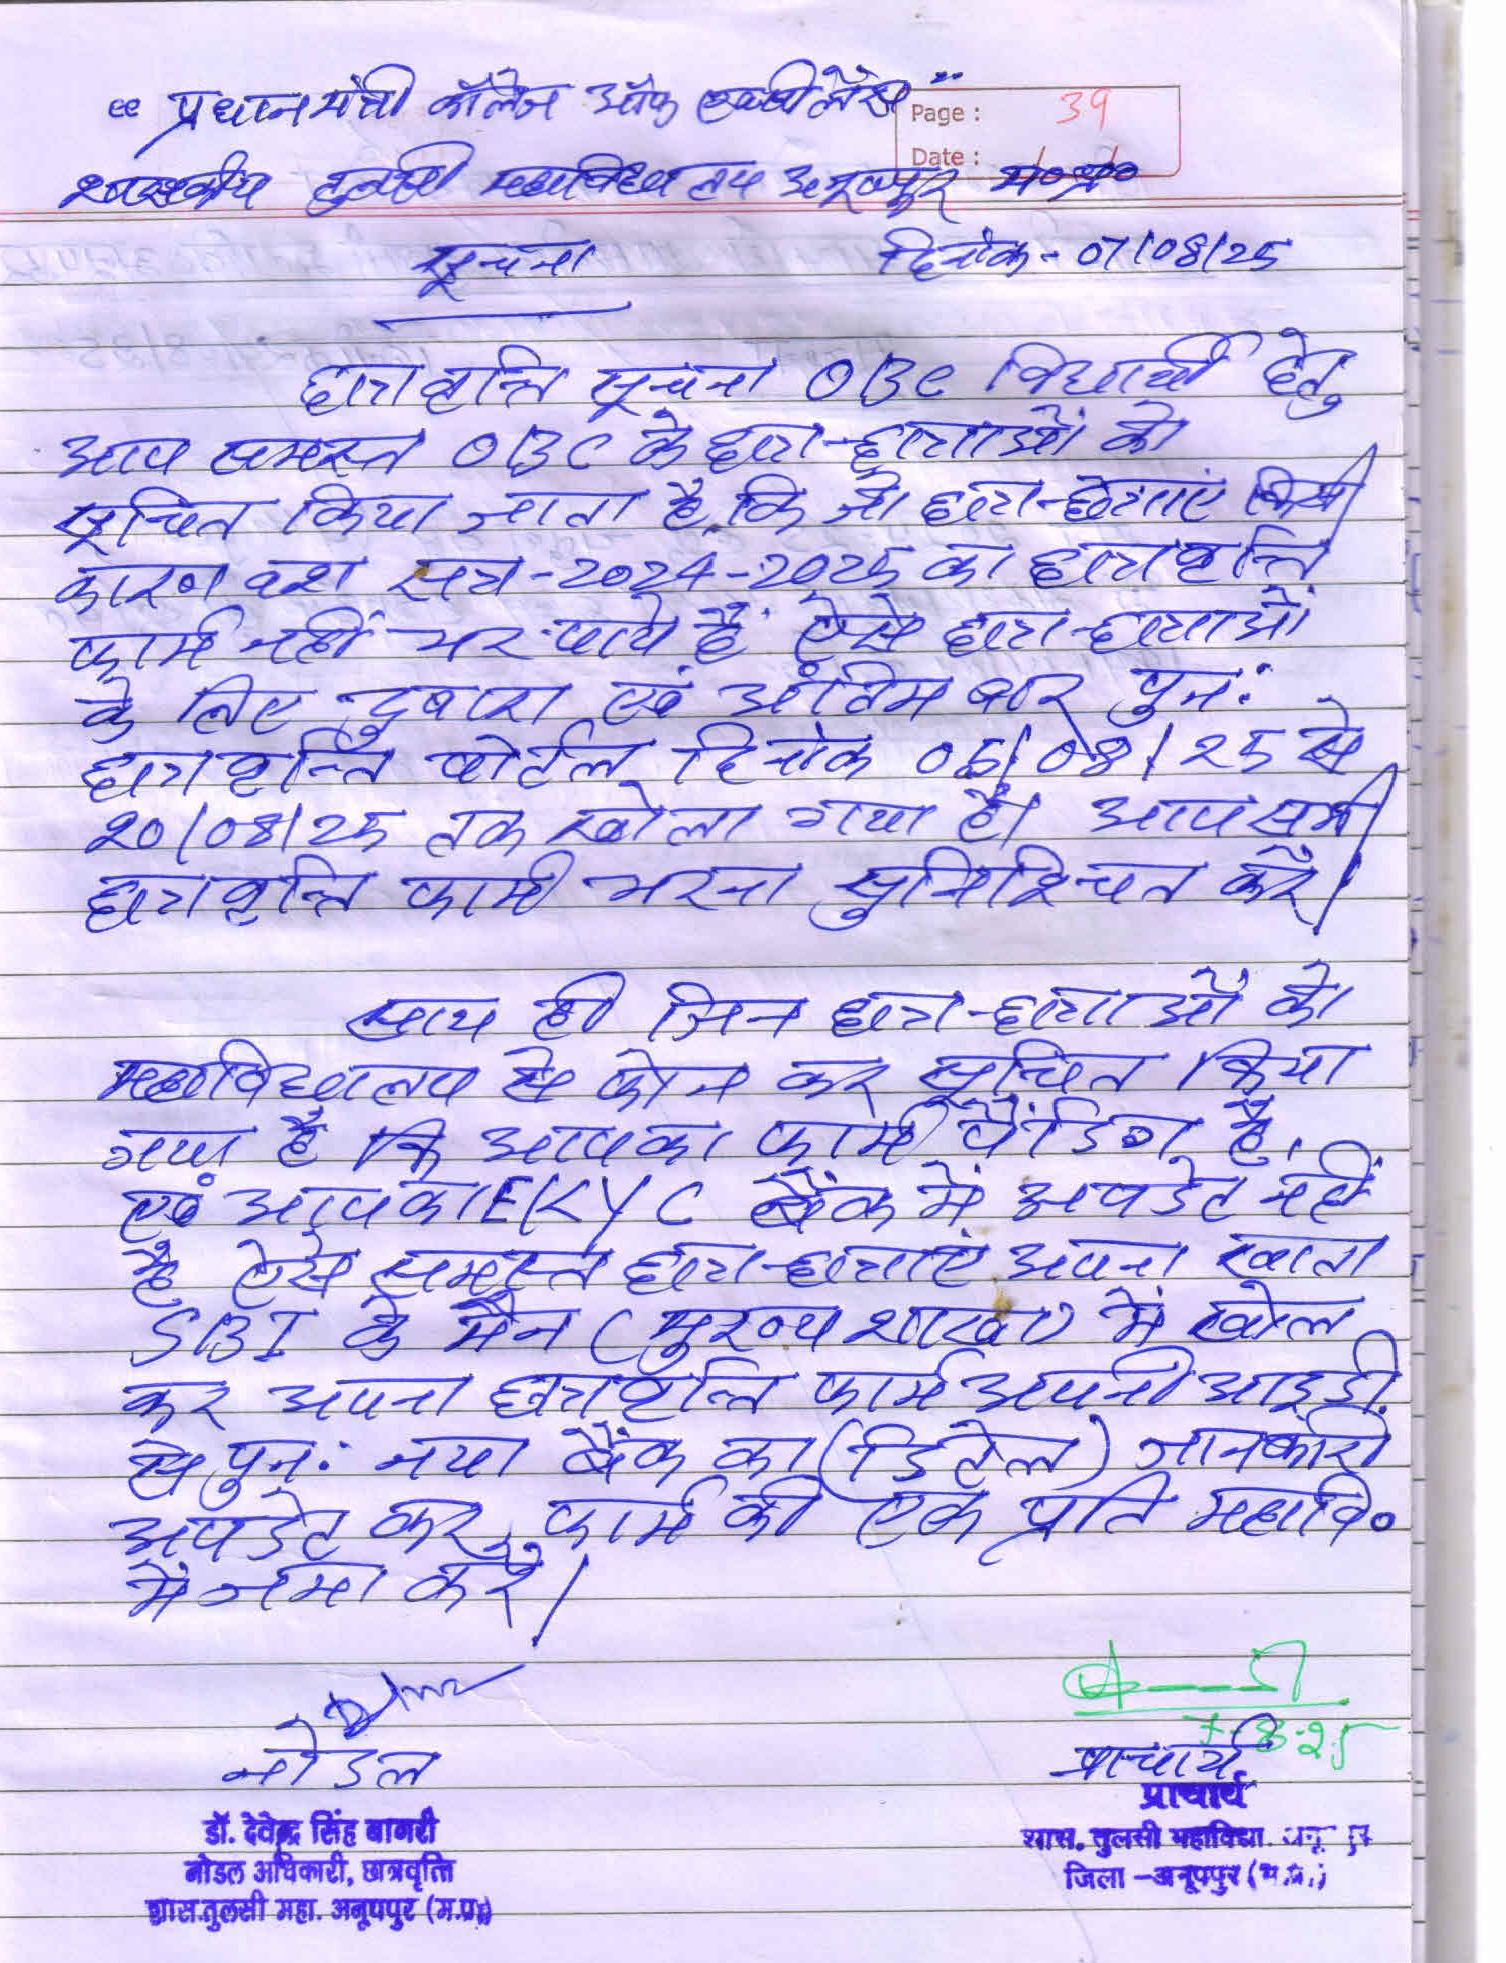 “ प्रधानमंत्री कॉलेज ऑफ एक्सीलेंस ”
Page : 39
Date :
शासकीय तुलसी महाविद्यालय अनूपपुर म०प्र०
सूचना दिनांक - 07/08/25
छात्रवृत्ति सूचना OBC विद्यार्थी हेतु
आप समस्त OBC के छात्र-छात्राओं को
सूचित किया जाता है कि जो छात्र-छात्राएं किसी
कारण वश सत्र-2024-2025 का छात्रवृत्ति
फार्म नहीं भर पाये हैं ऐसे छात्र-छात्राओं
के लिए दुबारा एवं अंतिम बार पुन:
छात्रवृत्ति पोर्टल दिनांक 06/08/25 से
20/08/25 तक खोला गया है। आप सभी
छात्रवृत्ति फार्म भरना सुनिश्चित करें।
साथ ही जिन छात्र-छात्राओं को
महाविद्यालय से फोन कर सूचित किया
गया है कि आपका फार्म पेंडिंग है,
एवं आपका EKYC बैंक में अपडेट नहीं
है ऐसे समस्त छात्र-छात्राएं अपना खाता
SBI के मेन (मुख्य शाखा) में खोल
कर अपना छात्रवृत्ति फार्म अपनी आइडी
से पुन: नया बैंक का (डिटेल) जानकारी
अपडेट कर, फार्म की एक प्रति महावि०
में जमा करें।
7-8-25
नोडल प्राचार्य
डॉ. देवेन्द्र सिंह बागरी
नोडल अधिकारी, छात्रवृत्ति
शास.तुलसी महा. अनूपपुर (म.प्र.)
प्राचार्य
शास. तुलसी महाविद्या.
जिला -अनूपपुर (म.प्र.)